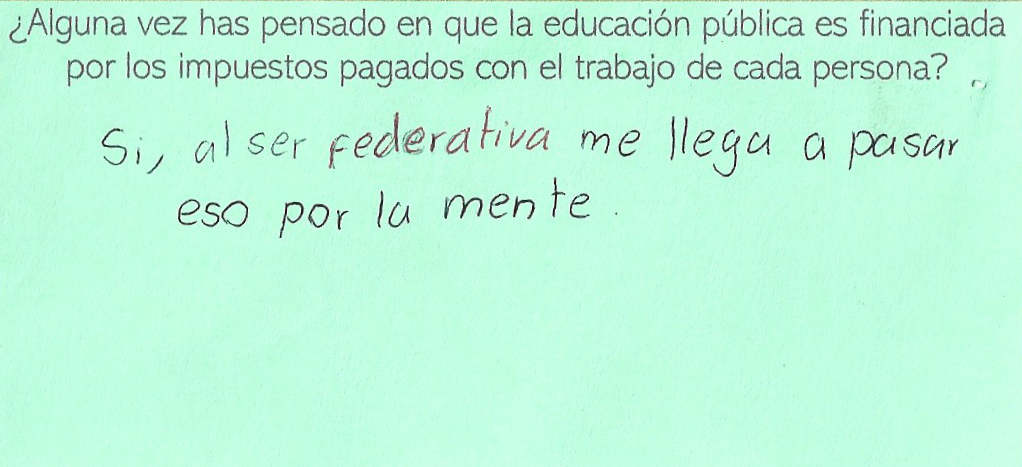 ¿Alguna vez has pensado en que la educación pública es financiada
por los impuestos pagados con el trabajo de cada persona?
Si, al ser federativa me llega a pasar
eso por la mente.